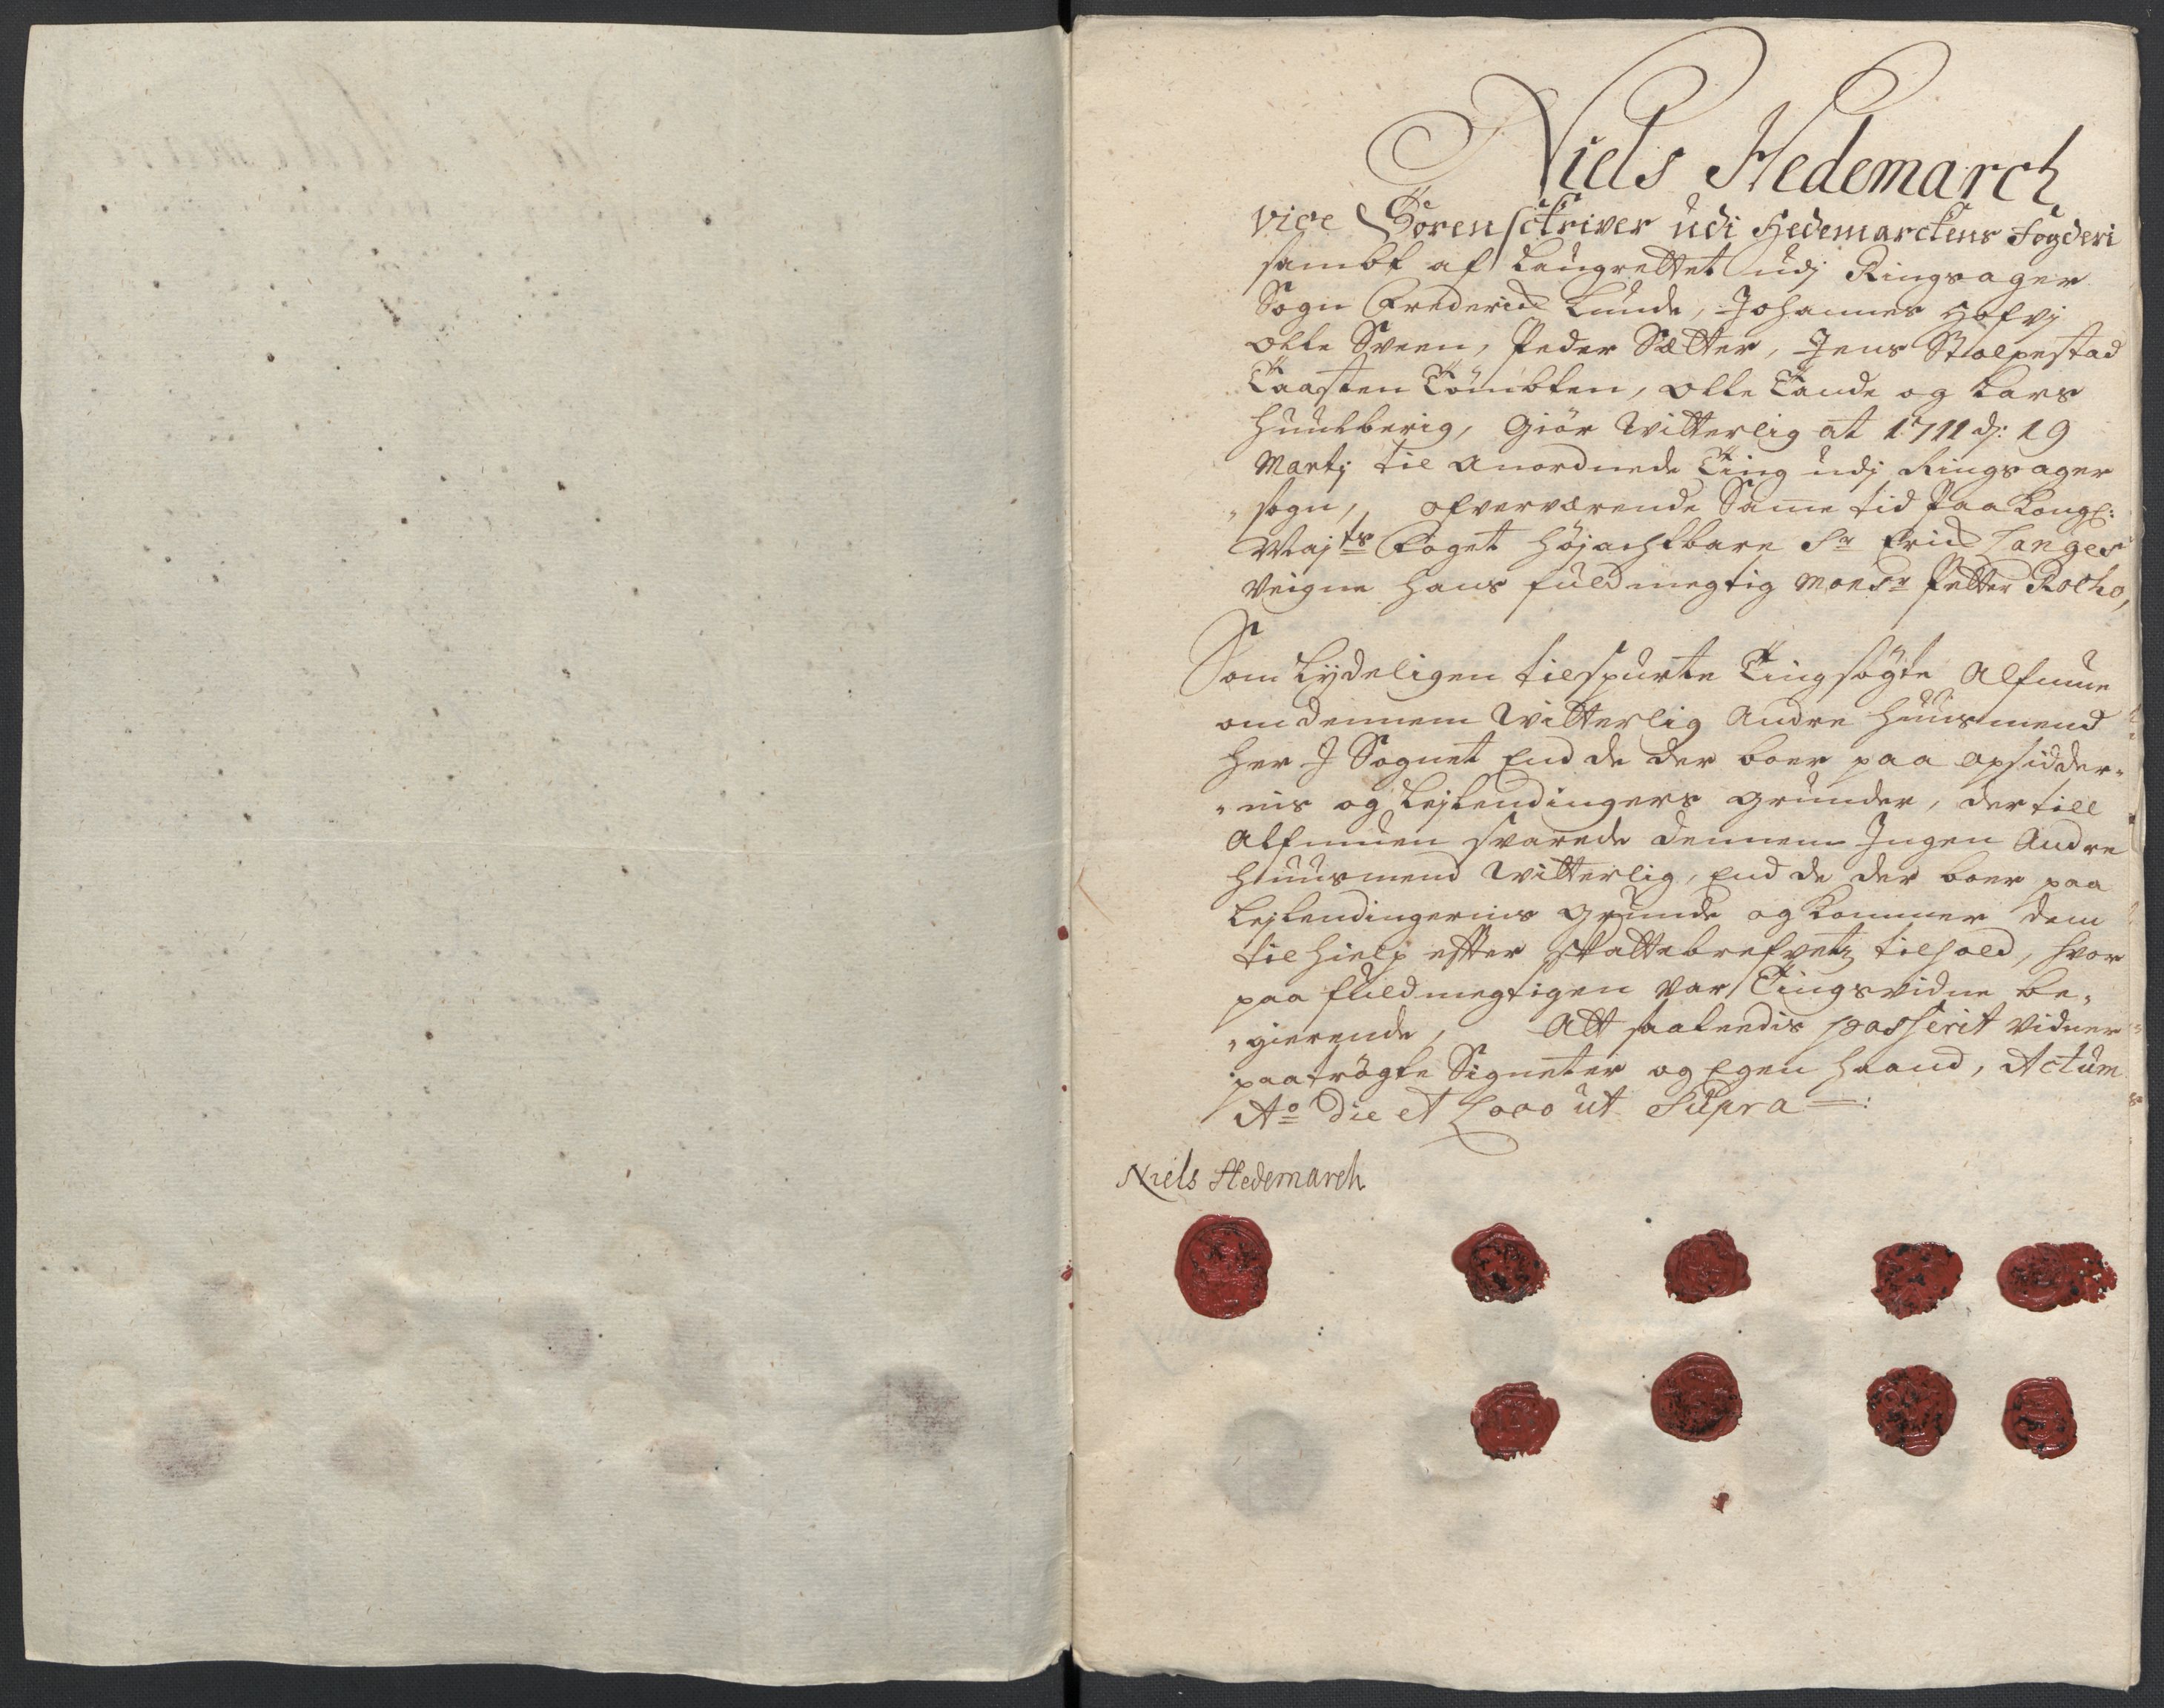 Niels Hedemarch
vice Sorenschriver udi Hedemarckens Fogderi
sambt af Laugrettet udj Ringsager
Sogn Frederich Lunde, Johannes Hofvj
Olle Sveen, Peder Sætter, Jens Stolpestad
Taasten Tömbten, Olle Tande og Lars
Huuslberig, Giör Witterlig at 1711 d: 19
Martj til anordnede Ting udj Ringsager
„sogn, ofverværende Same tid paa Kongl:
Majts Foget Höjachtbare Sr Erich Langes
Veigne hans fuldmegtig Monsr Petter Rolho,
Som lydeligen tilspurte Tingsögte Almuue
om dennem Witterlig Andre Huusmend
her J Sognet End de der boer paa opsidder„
„nis og Lejlendingers grunder, der till
Almuuen svarede dennem Jngen Andre
Huusmend Witterlig, End de der boer paa
Lejlendingernis grunde og kommer dem
til hielp effter skattebrefvetz tilhold, hvor
paa fuldmegtigen var Tingsvidne be„
„gierende, Att saaleedis passerit vidner
paatrögte Signeter og Egen Haand, Actum
Ao Die et Loco ut Supra
Niels Hedemarch